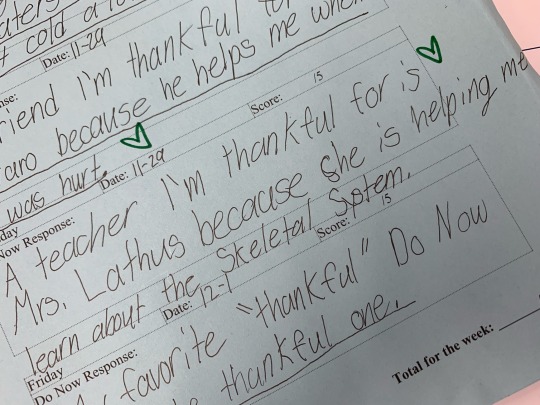 t cold a
Date: 11-29
riend I'm thankful
aro because he helps me when
was hurt.
Date: 11-29
Score: 15
Now Response:
A teacher I'm thankful for is
Mrs. Lathus because she is helping me
learn about the skeletal System.
Friday
Date: 12-1
Score: 15
Do Now Response:
favorite "thankful" Do Now
thankful one.
Total for the week: